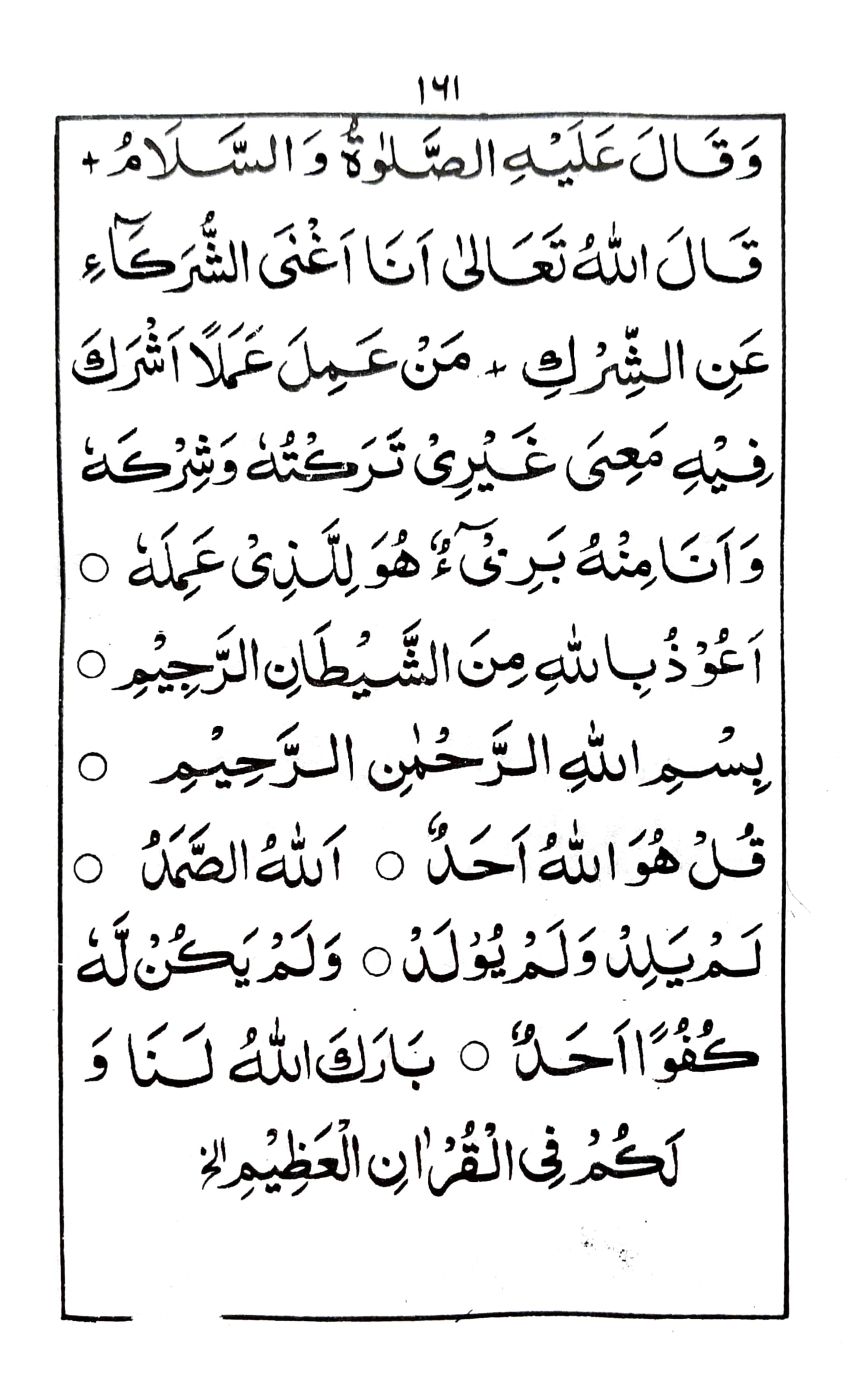 ۱۶۱
وَقَالَ عَلَيْهِ الصَّلٰوةُ وَ السَّلَامُ +
قَالَ اللّٰهُ تَعَالىٰ اَنَا اَغْنَى الشُّرَكَآءِ
عَنِ الشِّرْكِ + مَنْ عَمِلَ عَمَلًا اَشْرَكَ
فِيْهِ مَعِىَ غَيْرِىْ تَرَكْتُهٗ وَشِرْكَهٗ
وَ اَنَا مِنْهُ بَرِىْٓءٌ هُوَ لِلَّذِىْ عَمِلَهٗ ○
اَعُوْذُ بِاللّٰهِ مِنَ الشَّيْطَانِ الرَّجِيْمِ ○
بِسْمِ اللّٰهِ الرَّحْمٰنِ الرَّحِيْمِ ○
قُلْ هُوَ اللّٰهُ اَحَدٌ ○ اَللّٰهُ الصَّمَدُ ○
لَمْ يَلِدْ وَلَمْ يُوْلَدْ ○ وَلَمْ يَكُنْ لَّهٗ
كُفُوًا اَحَدٌ ○ بَارَكَ اللّٰهُ لَنَا وَ
لَكُمْ فِى الْقُرْاٰنِ الْعَظِيْمِ الخ